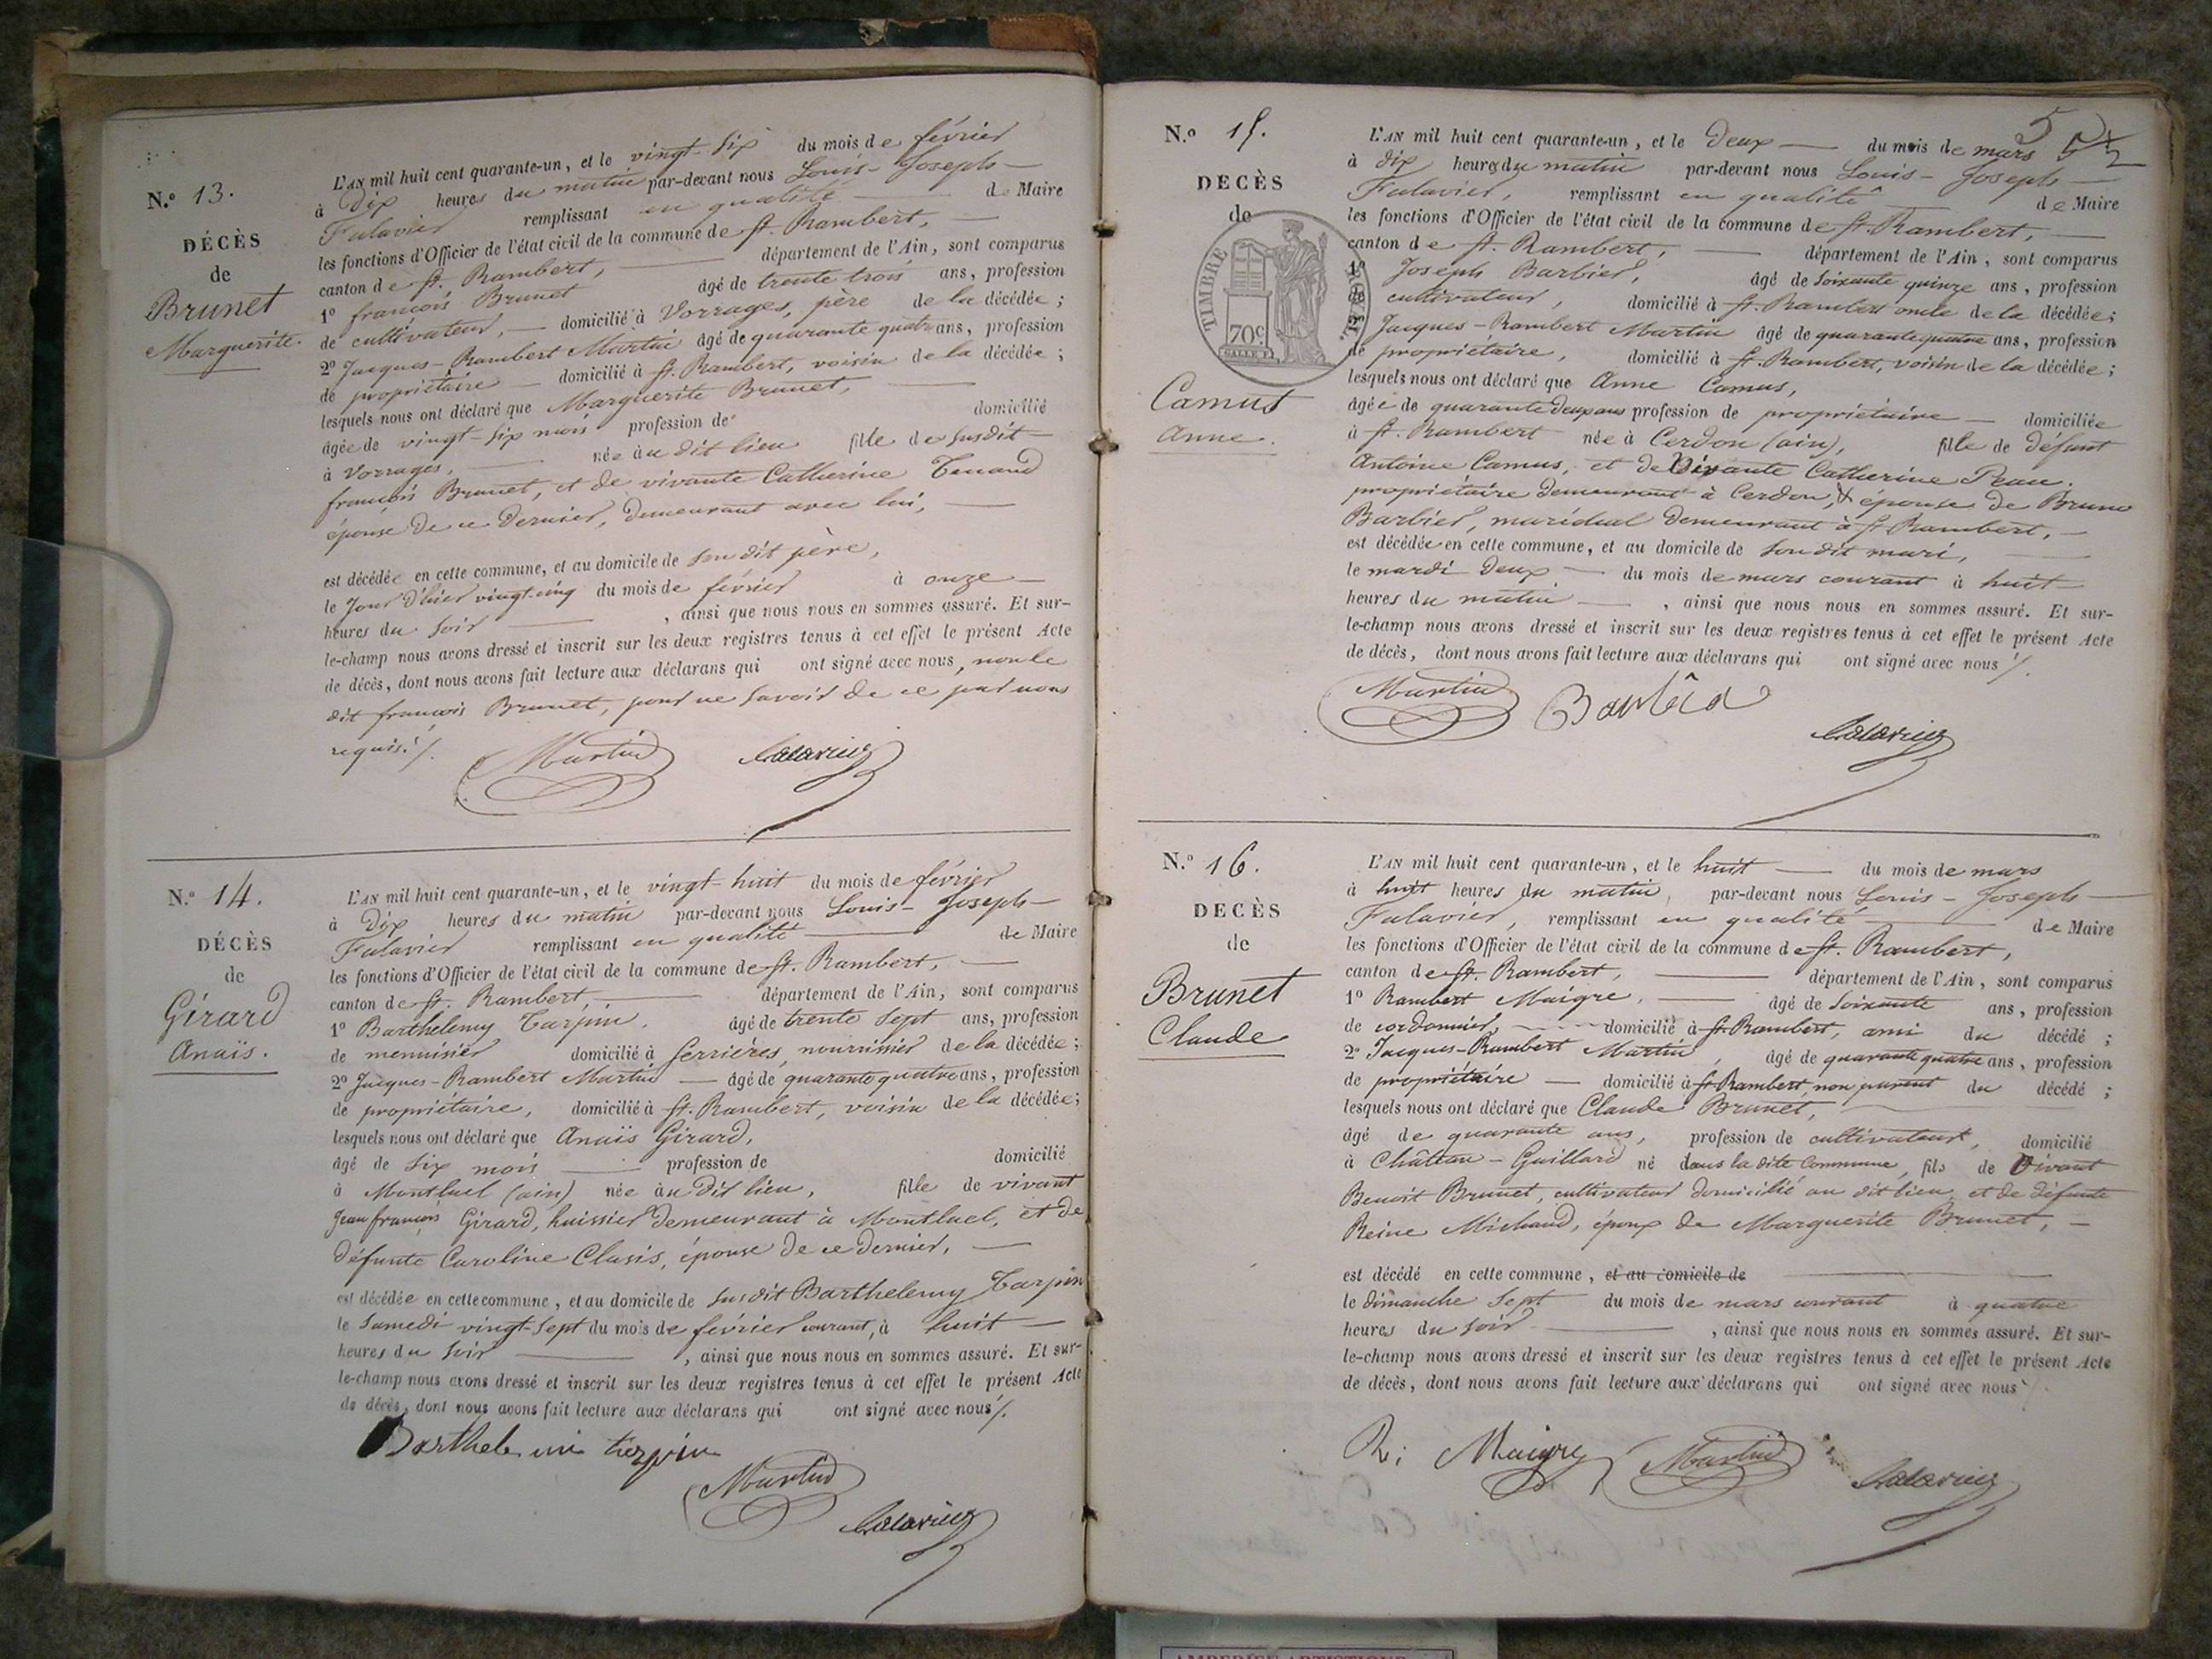 N.o 13.
DÉCÈS
de
Brunet
Marguerite.
L'AN mil huit cent quarante-un, et le vingt-six du mois de février
à dix heures du matin par-devant nous Louis-Joseph
Falavier remplissant en qualité de Maire
les fonctions d'Officier de l'état civil de la commune de St. Rambert,
canton de St. Rambert, département de l'Ain, sont comparus
1o françois Brunet âgé de trente trois ans, profession
de cultivateur, domicilié à Vorrages, père de la décédée;
2o Jacques-Rambert Martin âgé de quarante quatre ans, profession
de propriétaire domicilié à St. Rambert, voisin de la décédée;
lesquels nous ont déclaré que Marguerite Brunet,
âgée de vingt-six mois profession de domicilié
à Vorrages, née au dit lieu fille de susdit
françois Brunet, et de vivante Catherine Tenand
épouse de ce dernier, demeurant avec lui,
est décédée en cette commune, et au domicile de son dit père,
le jour d'hier vingt-cinq du mois de février à onze
heures du soir, ainsi que nous nous en sommes assuré. Et sur-
le-champ nous avons dressé et inscrit sur les deux registres tenus à cet effet le présent Acte
de décès, dont nous avons fait lecture aux déclarans qui ont signé avec nous, non le
dit françois Brunet, pour ne savoir de ce par nous
requis./.
Martin Falavier
N.o 14.
DÉCÈS
de
Girard
Anaïs.
L'AN mil huit cent quarante-un, et le vingt-huit du mois de février
à dix heures du matin par-devant nous Louis-Joseph
Falavier remplissant en qualité de Maire
les fonctions d'Officier de l'état civil de la commune de St. Rambert,
canton de St. Rambert, département de l'Ain, sont comparus
1o Barthelemy Tarpin, âgé de trente sept ans, profession
de menuisier domicilié à Serrières, nourrissier de la décédée;
2o Jacques-Rambert Martin âgé de quarante quatre ans, profession
de propriétaire, domicilié à St. Rambert, voisin de la décédée;
lesquels nous ont déclaré que Anaïs Girard,
âgé de six mois profession de domicilié
à Montluel (ain) née au dit lieu, fille de vivant
Jean françois Girard, huissier demeurant à Montluel, et de
défunte Caroline Clasis, épouse de ce dernier,
est décédée en cette commune, et au domicile de susdit Barthelemy Tarpin
le samedi vingt-sept du mois de février courant, à huit
heures du soir, ainsi que nous nous en sommes assuré. Et sur-
le-champ nous avons dressé et inscrit sur les deux registres tenus à cet effet le présent Acte
de décès, dont nous avons fait lecture aux déclarans qui ont signé avec nous./.
Barthelemi tarpin
Martin
Falavier
5
N.o 15.
DECÈS
de
TIMBRE ROYAL
70c
Camus
Anne.
L'AN mil huit cent quarante-un, et le deux du mois de mars
à dix heures du matin par-devant nous Louis-Joseph
Falavier, remplissant en qualité de Maire
les fonctions d'Officier de l'état civil de la commune de St. Rambert,
canton de St. Rambert, département de l'Ain, sont comparus
1o Joseph Barbier, âgé de soixante quinze ans, profession
de cultivateur, domicilié à St. Rambert oncle de la décédée;
2o Jacques-Rambert Martin âgé de quarante quatre ans, profession
de propriétaire, domicilié à St. Rambert, voisin de la décédée;
lesquels nous ont déclaré que Anne Camus,
âgée de quarante deux ans profession de propriétaire domiciliée
à St. Rambert née à Cerdon (ain), fille de défunt
Antoine Camus, et de Vivante Catherine Peau.
propriétaire demeurant à Cerdon, & épouse de Bruno
Barbier, maréchal demeurant à St. Rambert,
est décédée en cette commune, et au domicile de son dit mari,
le mardi deux du mois de mars courant à huit
heures du matin, ainsi que nous nous en sommes assuré. Et sur-
le-champ nous avons dressé et inscrit sur les deux registres tenus à cet effet le présent Acte
de décès, dont nous avons fait lecture aux déclarans qui ont signé avec nous/.
Martin Barbier
Falavier
N.o 16.
DECÈS
de
Brunet
Claude
L'AN mil huit cent quarante-un, et le huit du mois de mars
à huit heures du matin, par-devant nous Louis-Joseph
Falavier, remplissant en qualité de Maire
les fonctions d'Officier de l'état civil de la commune de St. Rambert,
canton de St. Rambert, département de l'Ain, sont comparus
1o Rambert Maigre, âgé de soixante ans, profession
de cordonnier, domicilié à St. Rambert, ami du décédé;
2o Jacques-Rambert Martin, âgé de quarante quatre ans, profession
de propriétaire domicilié à St. Rambert non parent du décédé;
lesquels nous ont déclaré que Claude Brunet,
âgé de quarante ans, profession de cultivateur, domicilié
à Château-Gaillard né dans la dite Commune, fils de Vivant
Benoit Brunet, cultivateur domicilié au dit lieu, et de défunte
Reine Michaud, époux de Marguerite Brunet,
est décédé en cette commune, et au domicile de
le dimanche sept du mois de mars courant à quatre
heures du soir, ainsi que nous nous en sommes assuré. Et sur-
le-champ nous avons dressé et inscrit sur les deux registres tenus à cet effet le présent Acte
de décès, dont nous avons fait lecture aux déclarans qui ont signé avec nous/.
R: Maigre Martin Falavier